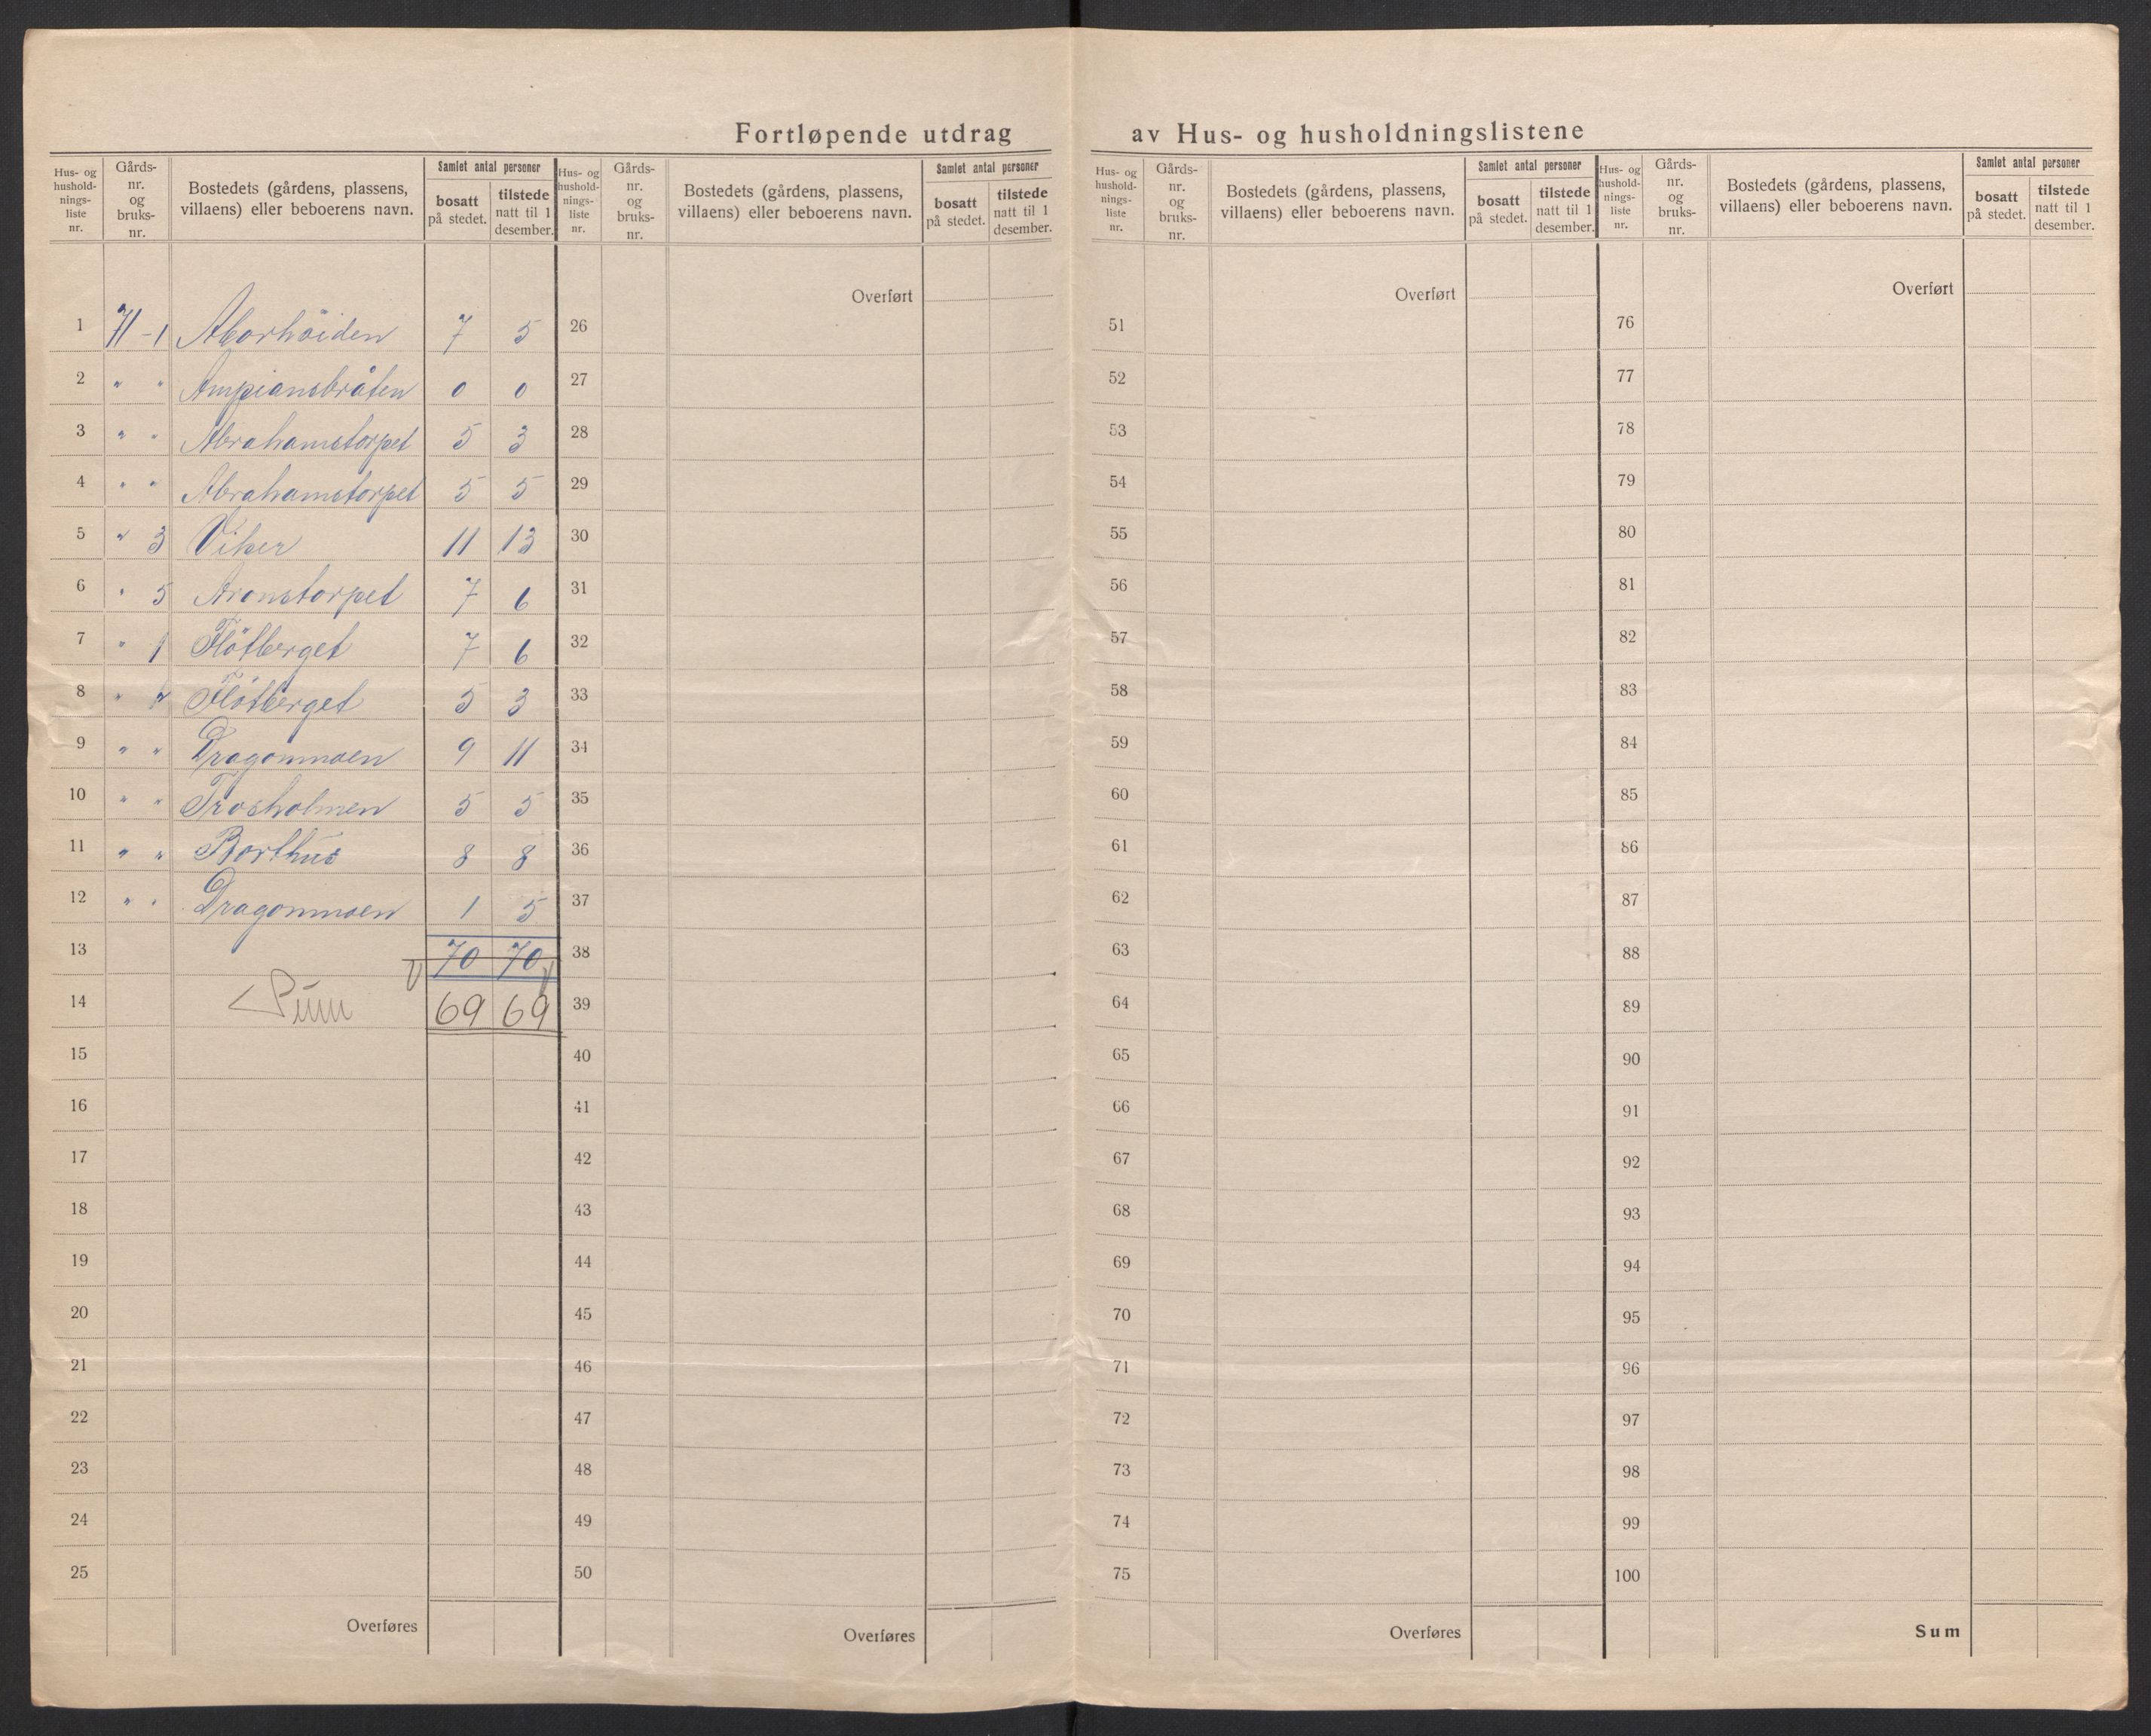 Fortløpende utdrag av Hus- og husholdningslistene
Hus- og hushold- nings- liste nr. | Gårds- nr. og bruks- nr. | Bostedets (gårdens, plassens, villaens) eller beboerens navn. | Samlet antal personer | bosatt på stedet. | tilstede natt til 1 desember.
Hus- og hushold- nings- liste nr. | Gårds- nr. og bruks- nr. | Bostedets (gårdens, plassens, villaens) eller beboerens navn. | Samlet antal personer | bosatt på stedet. | tilstede natt til 1 desember.
Hus- og hushold- nings- liste nr. | Gårds- nr. og bruks- nr. | Bostedets (gårdens, plassens, villaens) eller beboerens navn. | Samlet antal personer | bosatt på stedet. | tilstede natt til 1 desember.
Hus- og hushold- nings- liste nr. | Gårds- nr. og bruks- nr. | Bostedets (gårdens, plassens, villaens) eller beboerens navn. | Samlet antal personer | bosatt på stedet. | tilstede natt til 1 desember.
Overført Overført Overført
1 71-1 Aborhöiden 7 5 26 51 76
2 " " Ampiansbråten 0 0 27 52 77
3 " " Abrahamstorpet 5 3 28 53 78
4 " " Abrahamstorpet 5 5 29 54 79
5 " 3 Viker 11 13 30 55 80
6 " 5 Aronstorpet 7 6 31 56 81
7 " 1 Flötberget 7 6 32 57 82
8 " " Flötberget 5 3 33 58 83
9 " " Dragonmoen 9 11 34 59 84
10 " " Trosholmen 5 5 35 60 85
11 " " Borthus 8 8 36 61 86
12 " " Dragonmoen 1 5 37 62 87
13 70 70 38 63 88
14 Sum 69 69 39 64 89
15 40 65 90
16 41 66 91
17 42 67 92
18 43 68 93
19 44 69 94
20 45 70 95
21 46 71 96
22 47 72 97
23 48 73 98
24 49 74 99
25 50 75 100
Overføres Overføres Overføres Sum